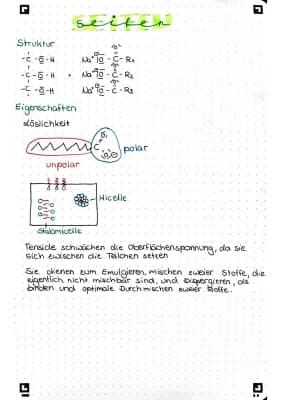 Seifen
Struktur
-C-O-H   Na⁺ O-C-R1
-C-O-H + Na⁺ O-C-R2
-C-O-H   Na⁺ O-C-R3
Eigenschaften
Löslichkeit
polar
unpolar
Micelle
Stabmicelle
Tenside schwächen die Oberflächenspannung, da sie
sich zwischen die Teilchen setzen
Sie dienen zum Emulgieren, mischen zweier Stoffe, die
eigentlich nicht mischbar sind, und Dispergieren, als
binden und optimale Durchmischen zweier Stoffe.